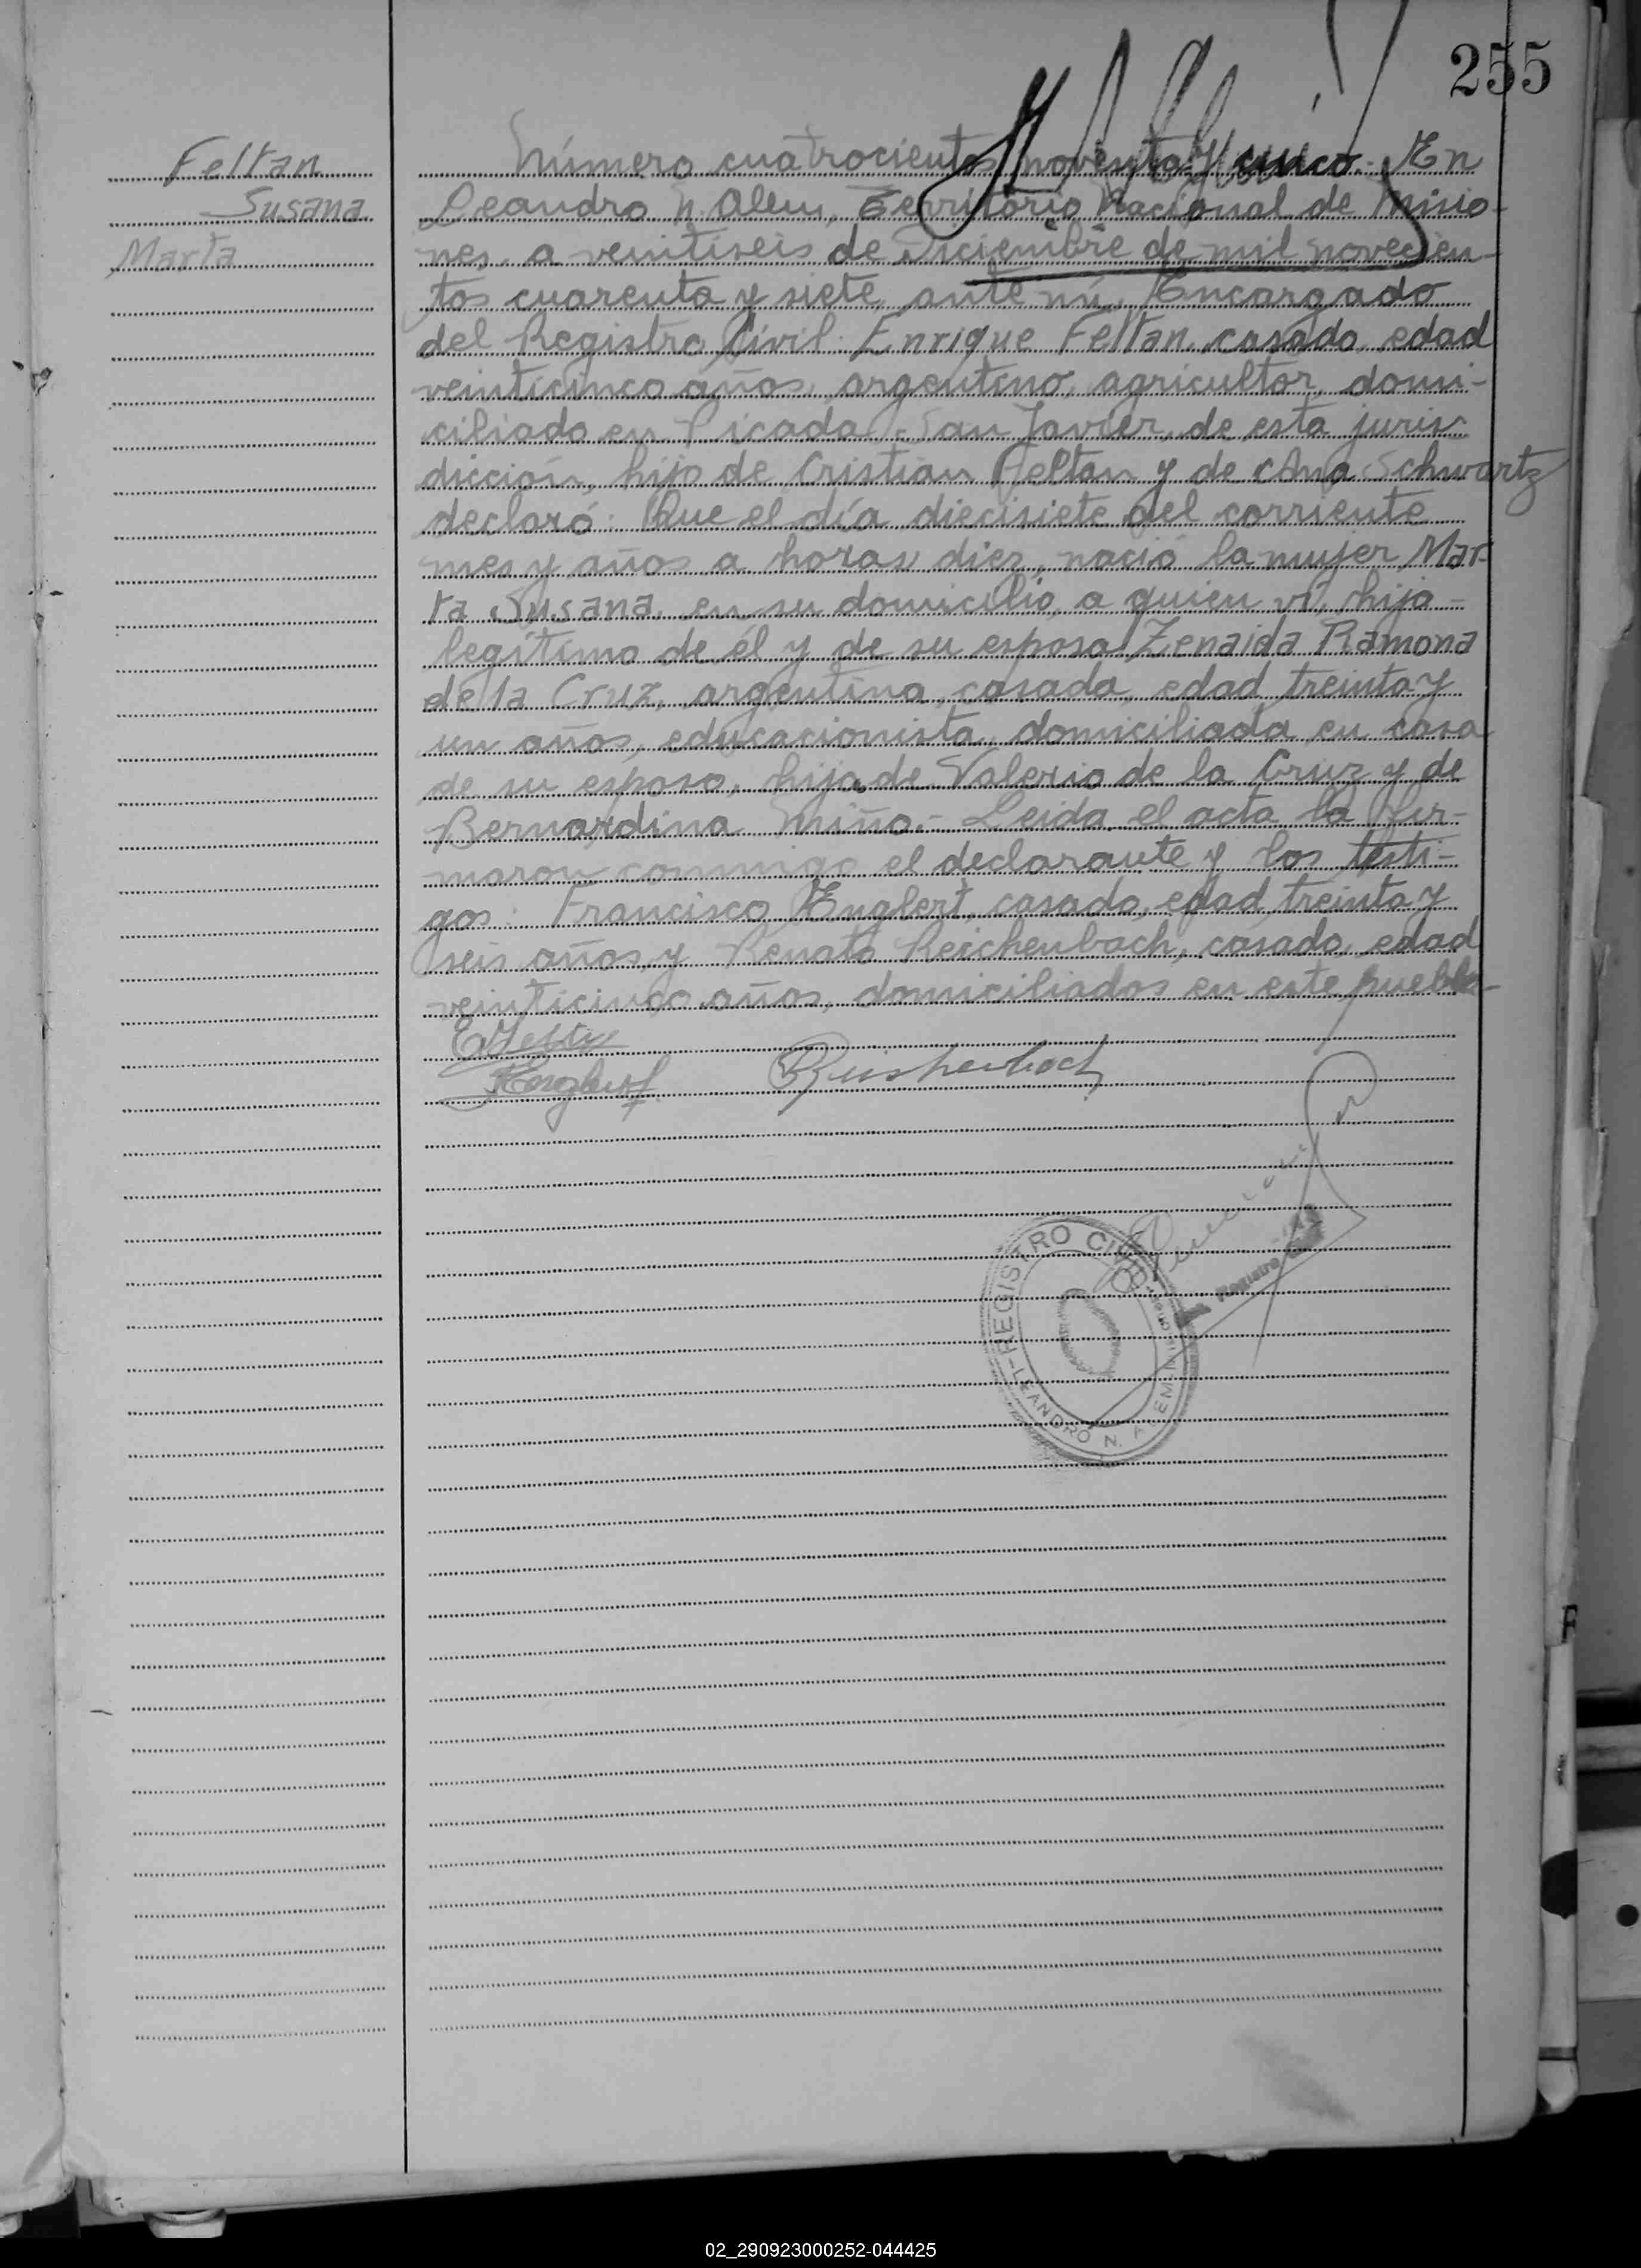 255
Feltan
Susana
Marta
Número cuatrocientos noventa y cinco. En
Leandro N. Alem, Territorio Nacional de Misio-
nes, a veintiseis de Diciembre de mil novecien-
tos cuarenta y siete, ante mí, Encargado
del Registro Civil: Enrique Feltan, casado, edad
veinticinco años, argentino, agricultor, domi-
ciliado en Picada San Javier, de esta juris-
dicción, hijo de Cristian Feltan y de Ana Schwartz
declaró: Que el día diecisiete del corriente
mes y años a horas diez, nació la mujer Mar-
ta Susana, en su domicilio, a quien vi, hija-
legítima de él y de su esposa Zenaida Ramona
de la Cruz, argentina, casada, edad treinta y
un años, educacionista, domiciliada en casa
de su esposo, hija de Valerio de la Cruz y de
Bernardina Miño.- Leida el acta la fir-
maron conmigo el declarante y los testi-
gos: Francisco Englert, casado, edad treinta y
seis años, y Renato Reichenbach, casado, edad
veinticinco años, domiciliados en este pueblo-
Englert
Reichenbach
REGISTRO CIVIL
LEANDRO N. ALEM
Registro
02_290923000252-044425